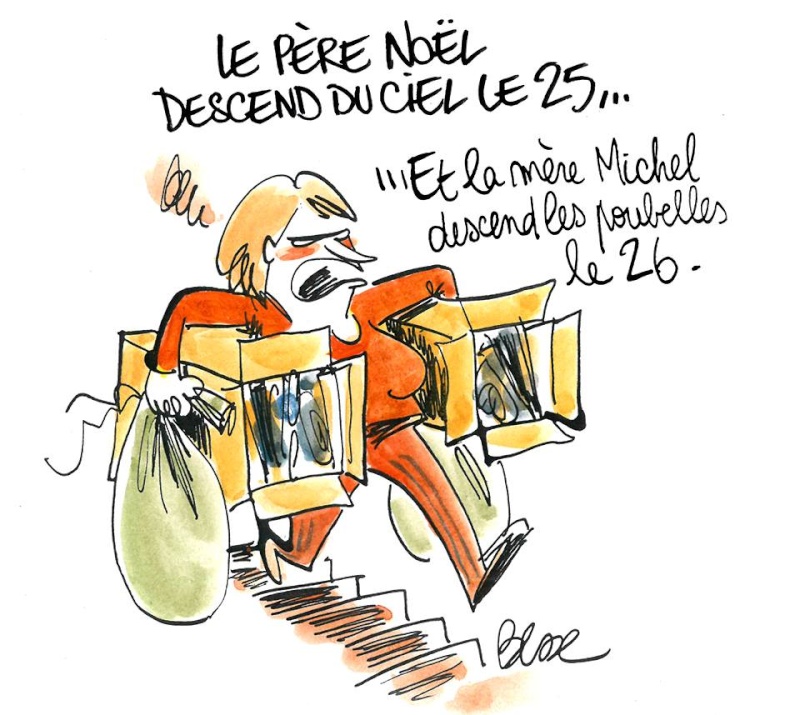 LE PÈRE NOËL
DESCEND DU CIEL LE 25,...
'''Et la mère Michel
descend les poubelles
le 26.
Besse